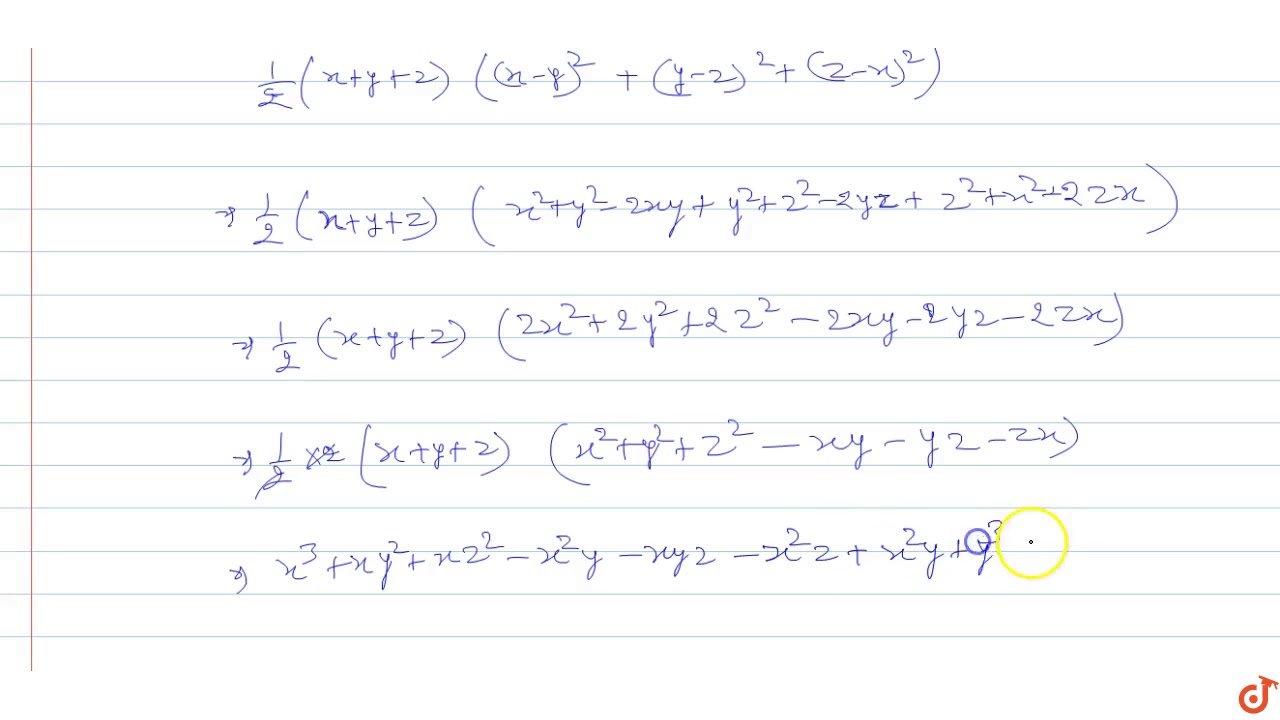 1/2 (x+y+z) ((x-y)² + (y-z)² + (z-x)²)
⇒ 1/2 (x+y+z) (x²+y²-2xy + y²+z²-2yz + z²+x²-2zx)
⇒ 1/2 (x+y+z) (2x²+2y²+2z² - 2xy - 2yz - 2zx)
⇒ 1/2 ×2 (x+y+z) (x²+y²+z² - xy - yz - zx)
⇒ x³ + xy² + xz² - x²y - xyz - x²z + x²y + y³